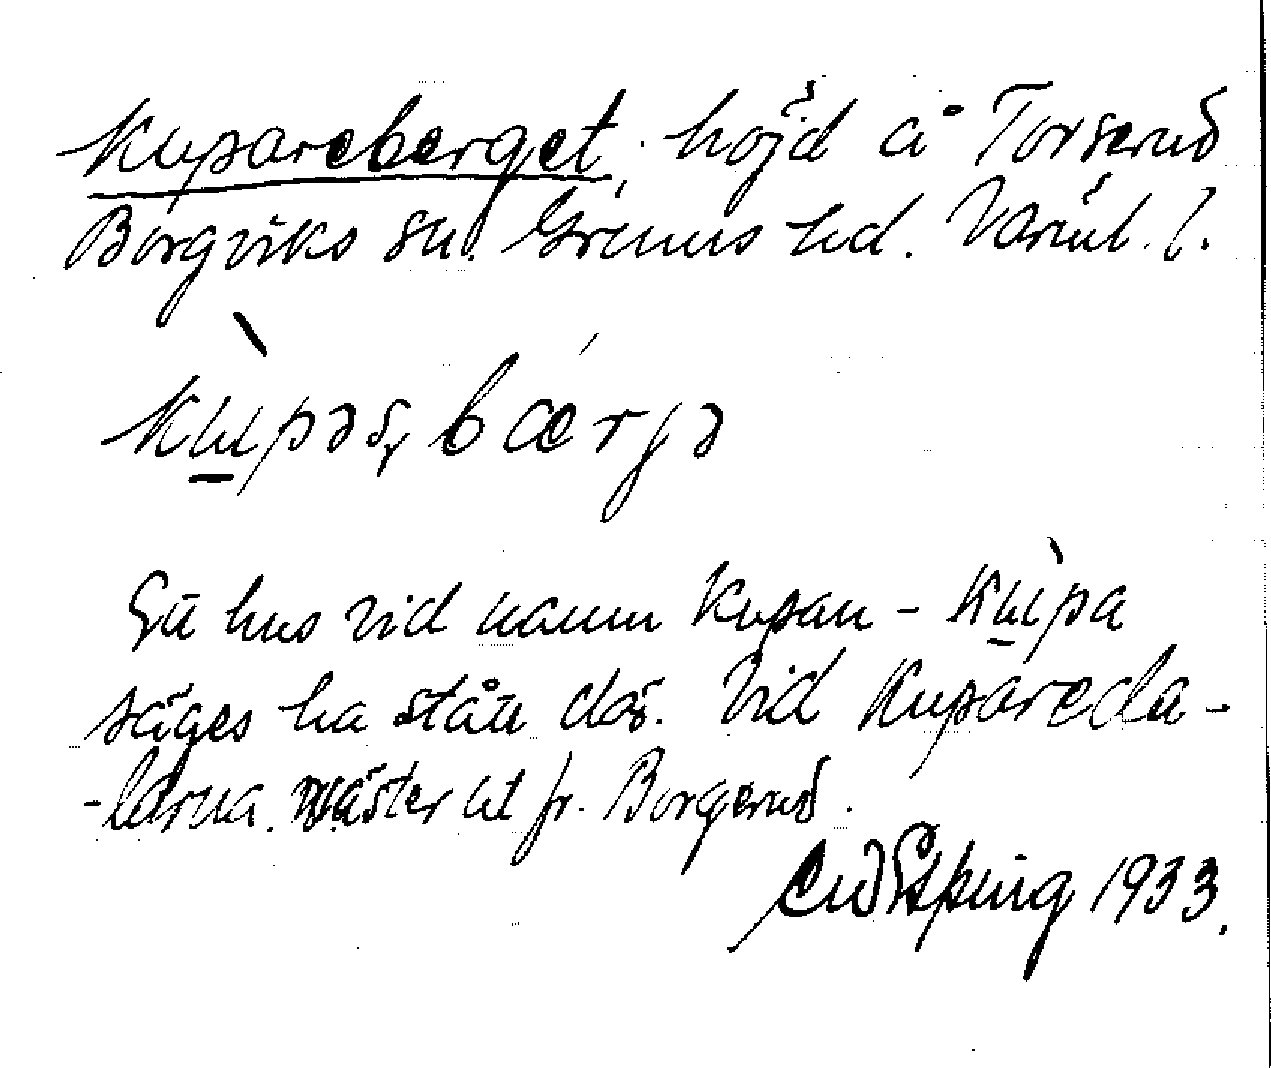 Kupareberget, höjd å Torserud
Borgviks sn. Grums hd. Värml. l.
Ett hus vid namn Kupan - kɯ̀pa
säges ha stått där. Vid Kupareda-
-larna. väster ut fr. Borgerud.
1933.